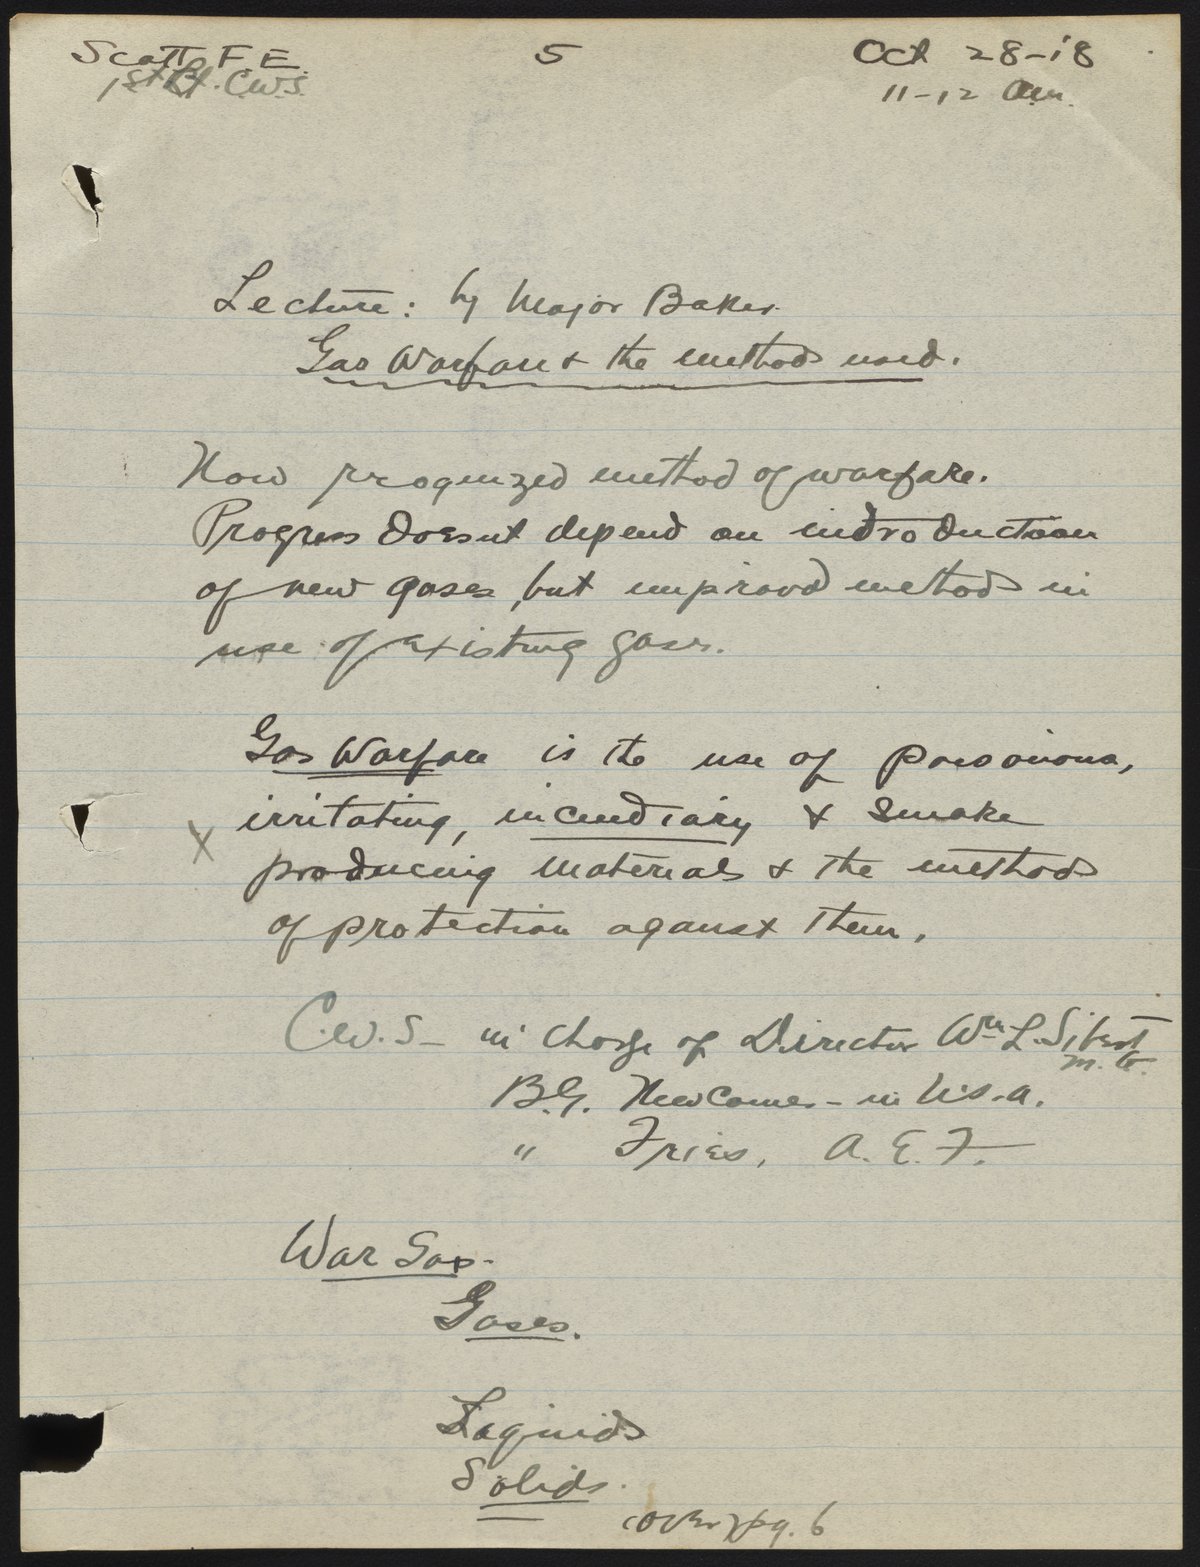 Scott F. E. 5 Oct 28-18
1st Lt. C.W.S. 11-12 Am.
Lecture: by Major Baker.
Gas Warfare & the methods used.
Now recognized method of warfare.
Progress doesnt depend on introduction
of new gases, but improvd methods in
use of existing gases.
Gas Warfare is the use of poisonous,
irritating, incendiary & smoke
x
producing materials & the methods
of protection against them.
C.W.S - in charge of Director Wm L. Sibert
M. G.
B.G. Newcomer - in U.S.A.
" Fries, A. E. F.
War Gas -
Gases.
Liquids
Solids.
(over) pg. 6